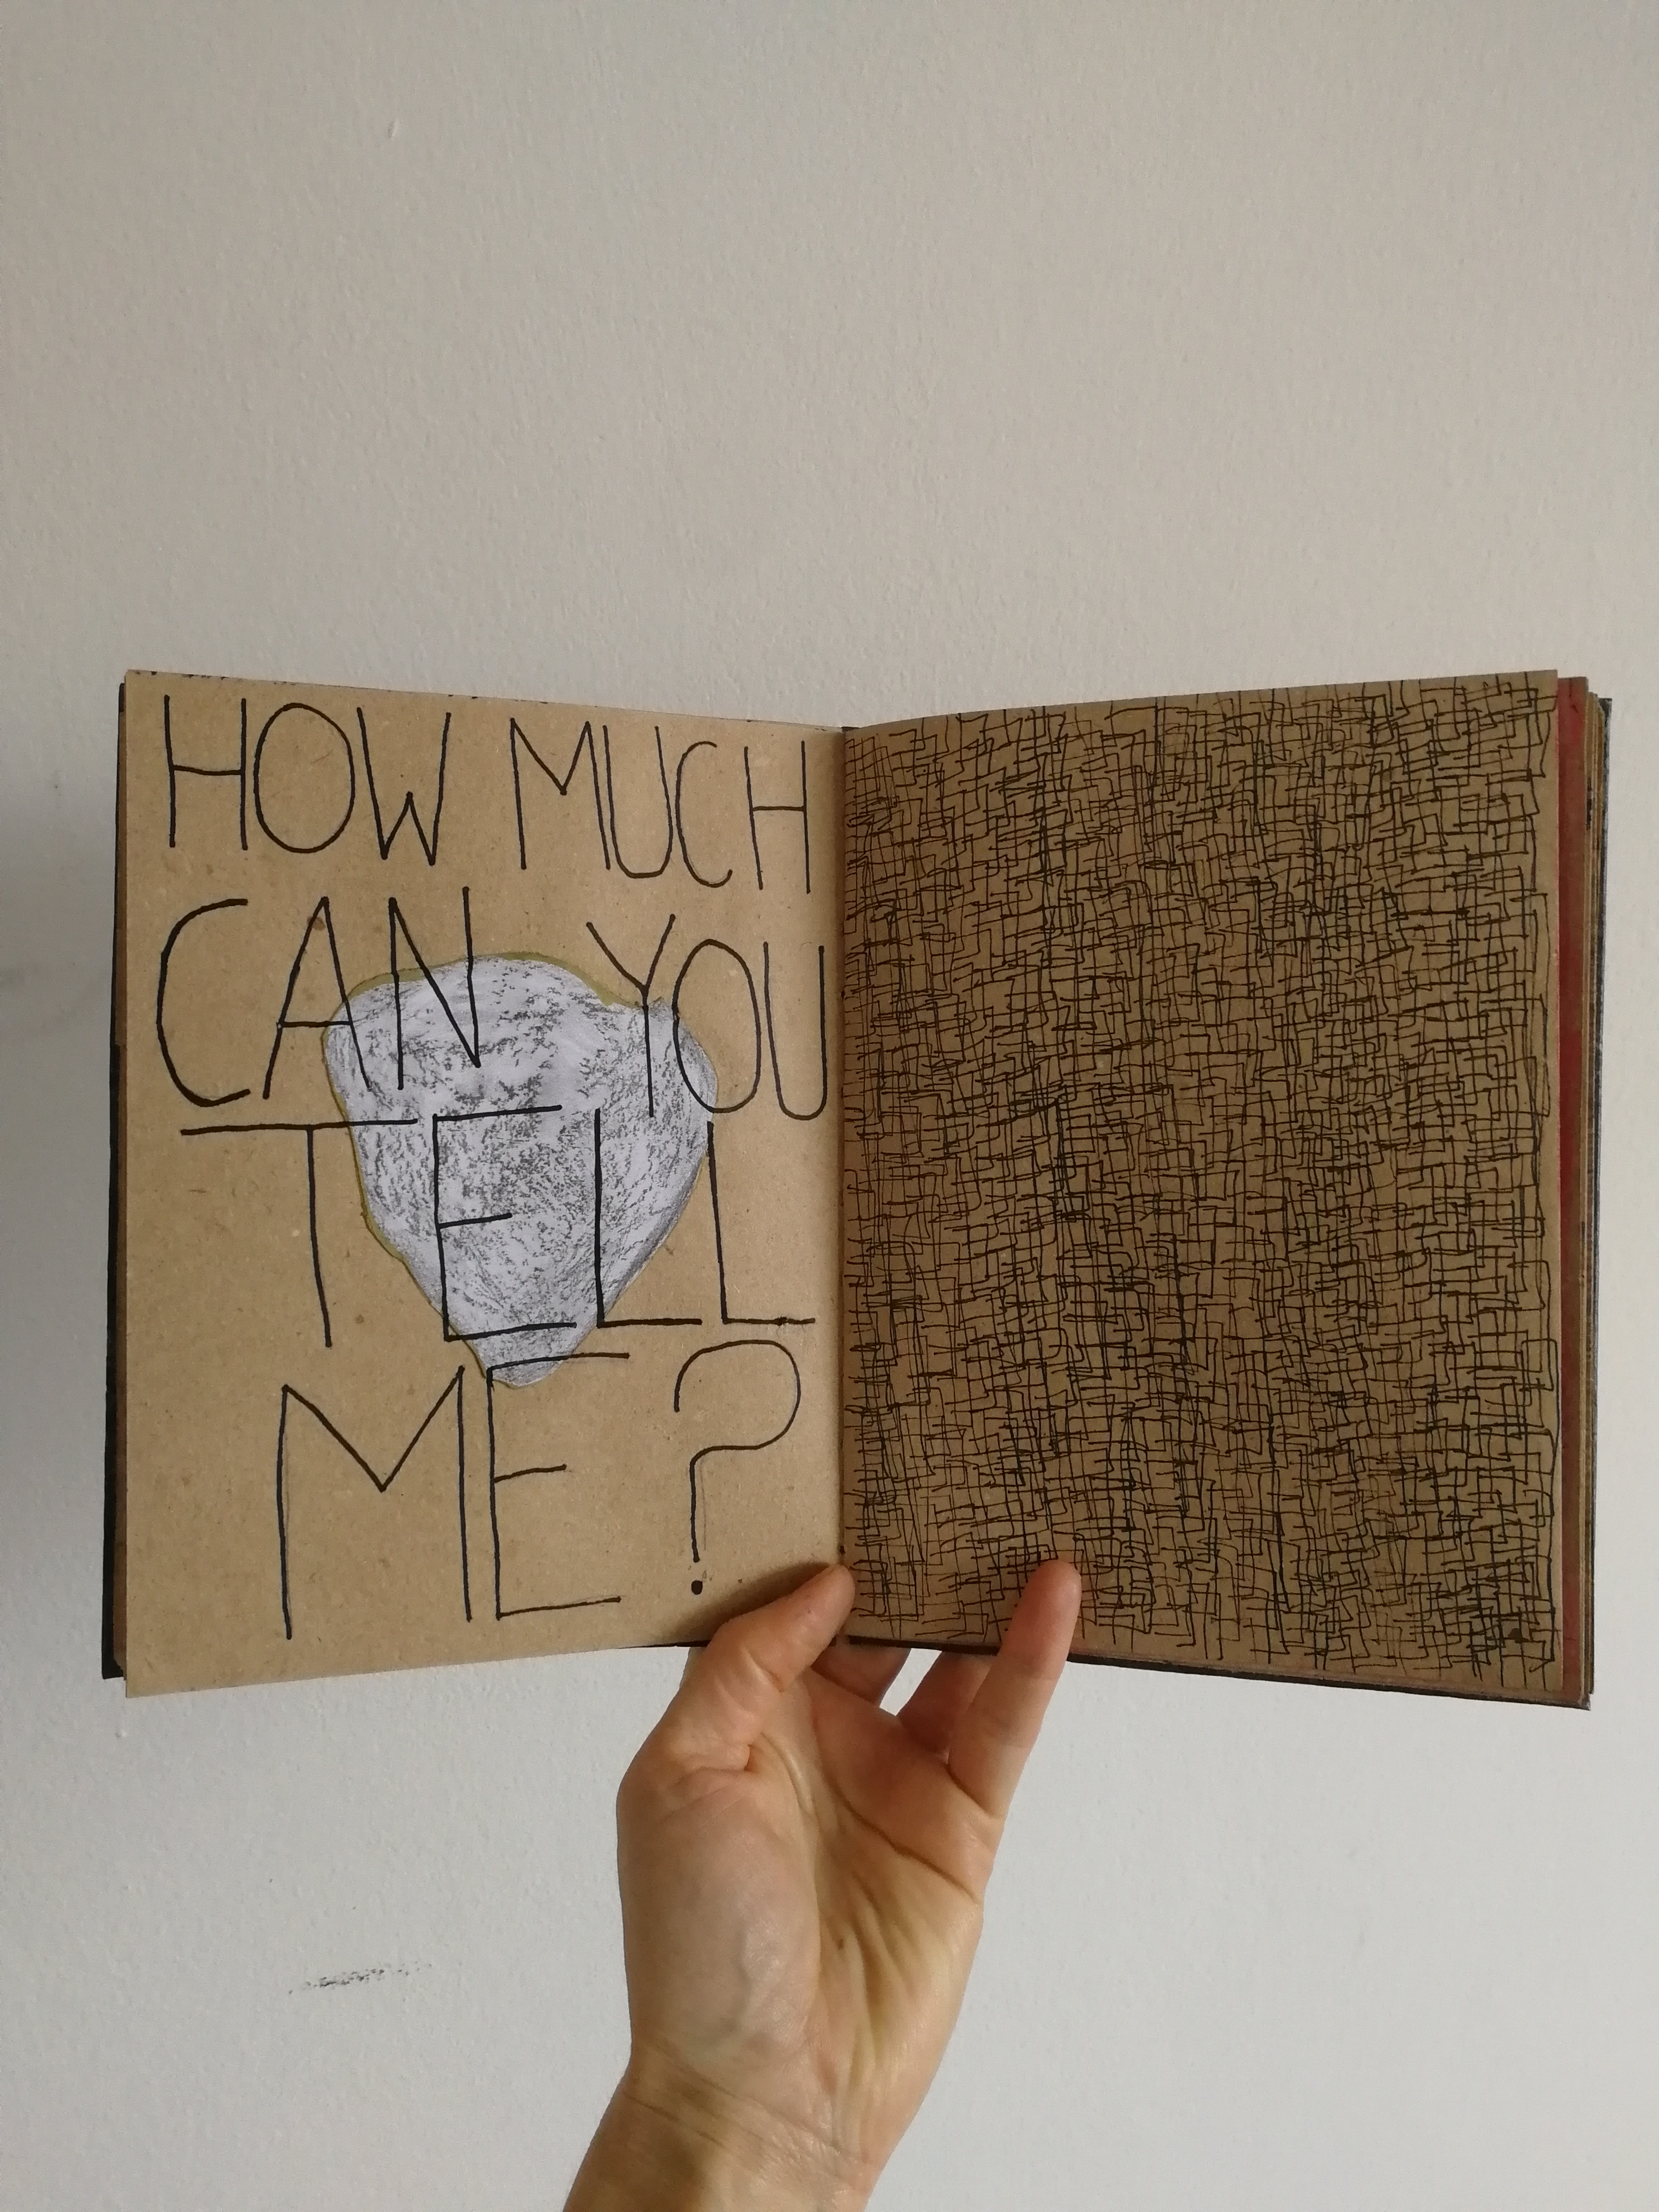 HOW MUCH
CAN YOU
TELL
ME?